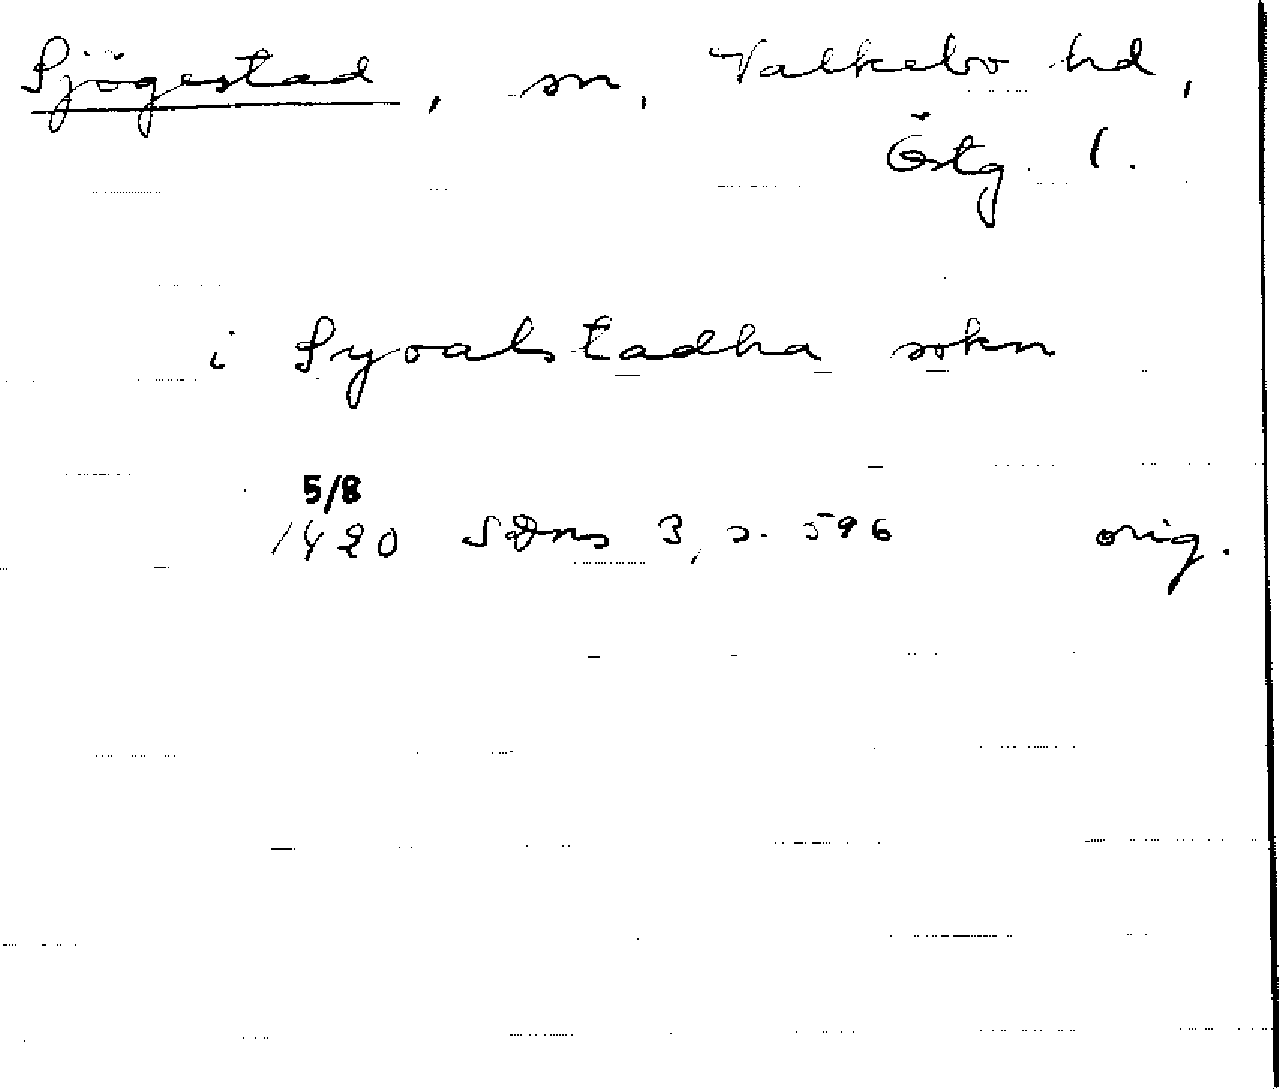 Sjögestad, sn, Valkebo hd,
Östg. l.
i Syoalstadha sokn
5/8
1420 SDns 3, s. 596 orig.